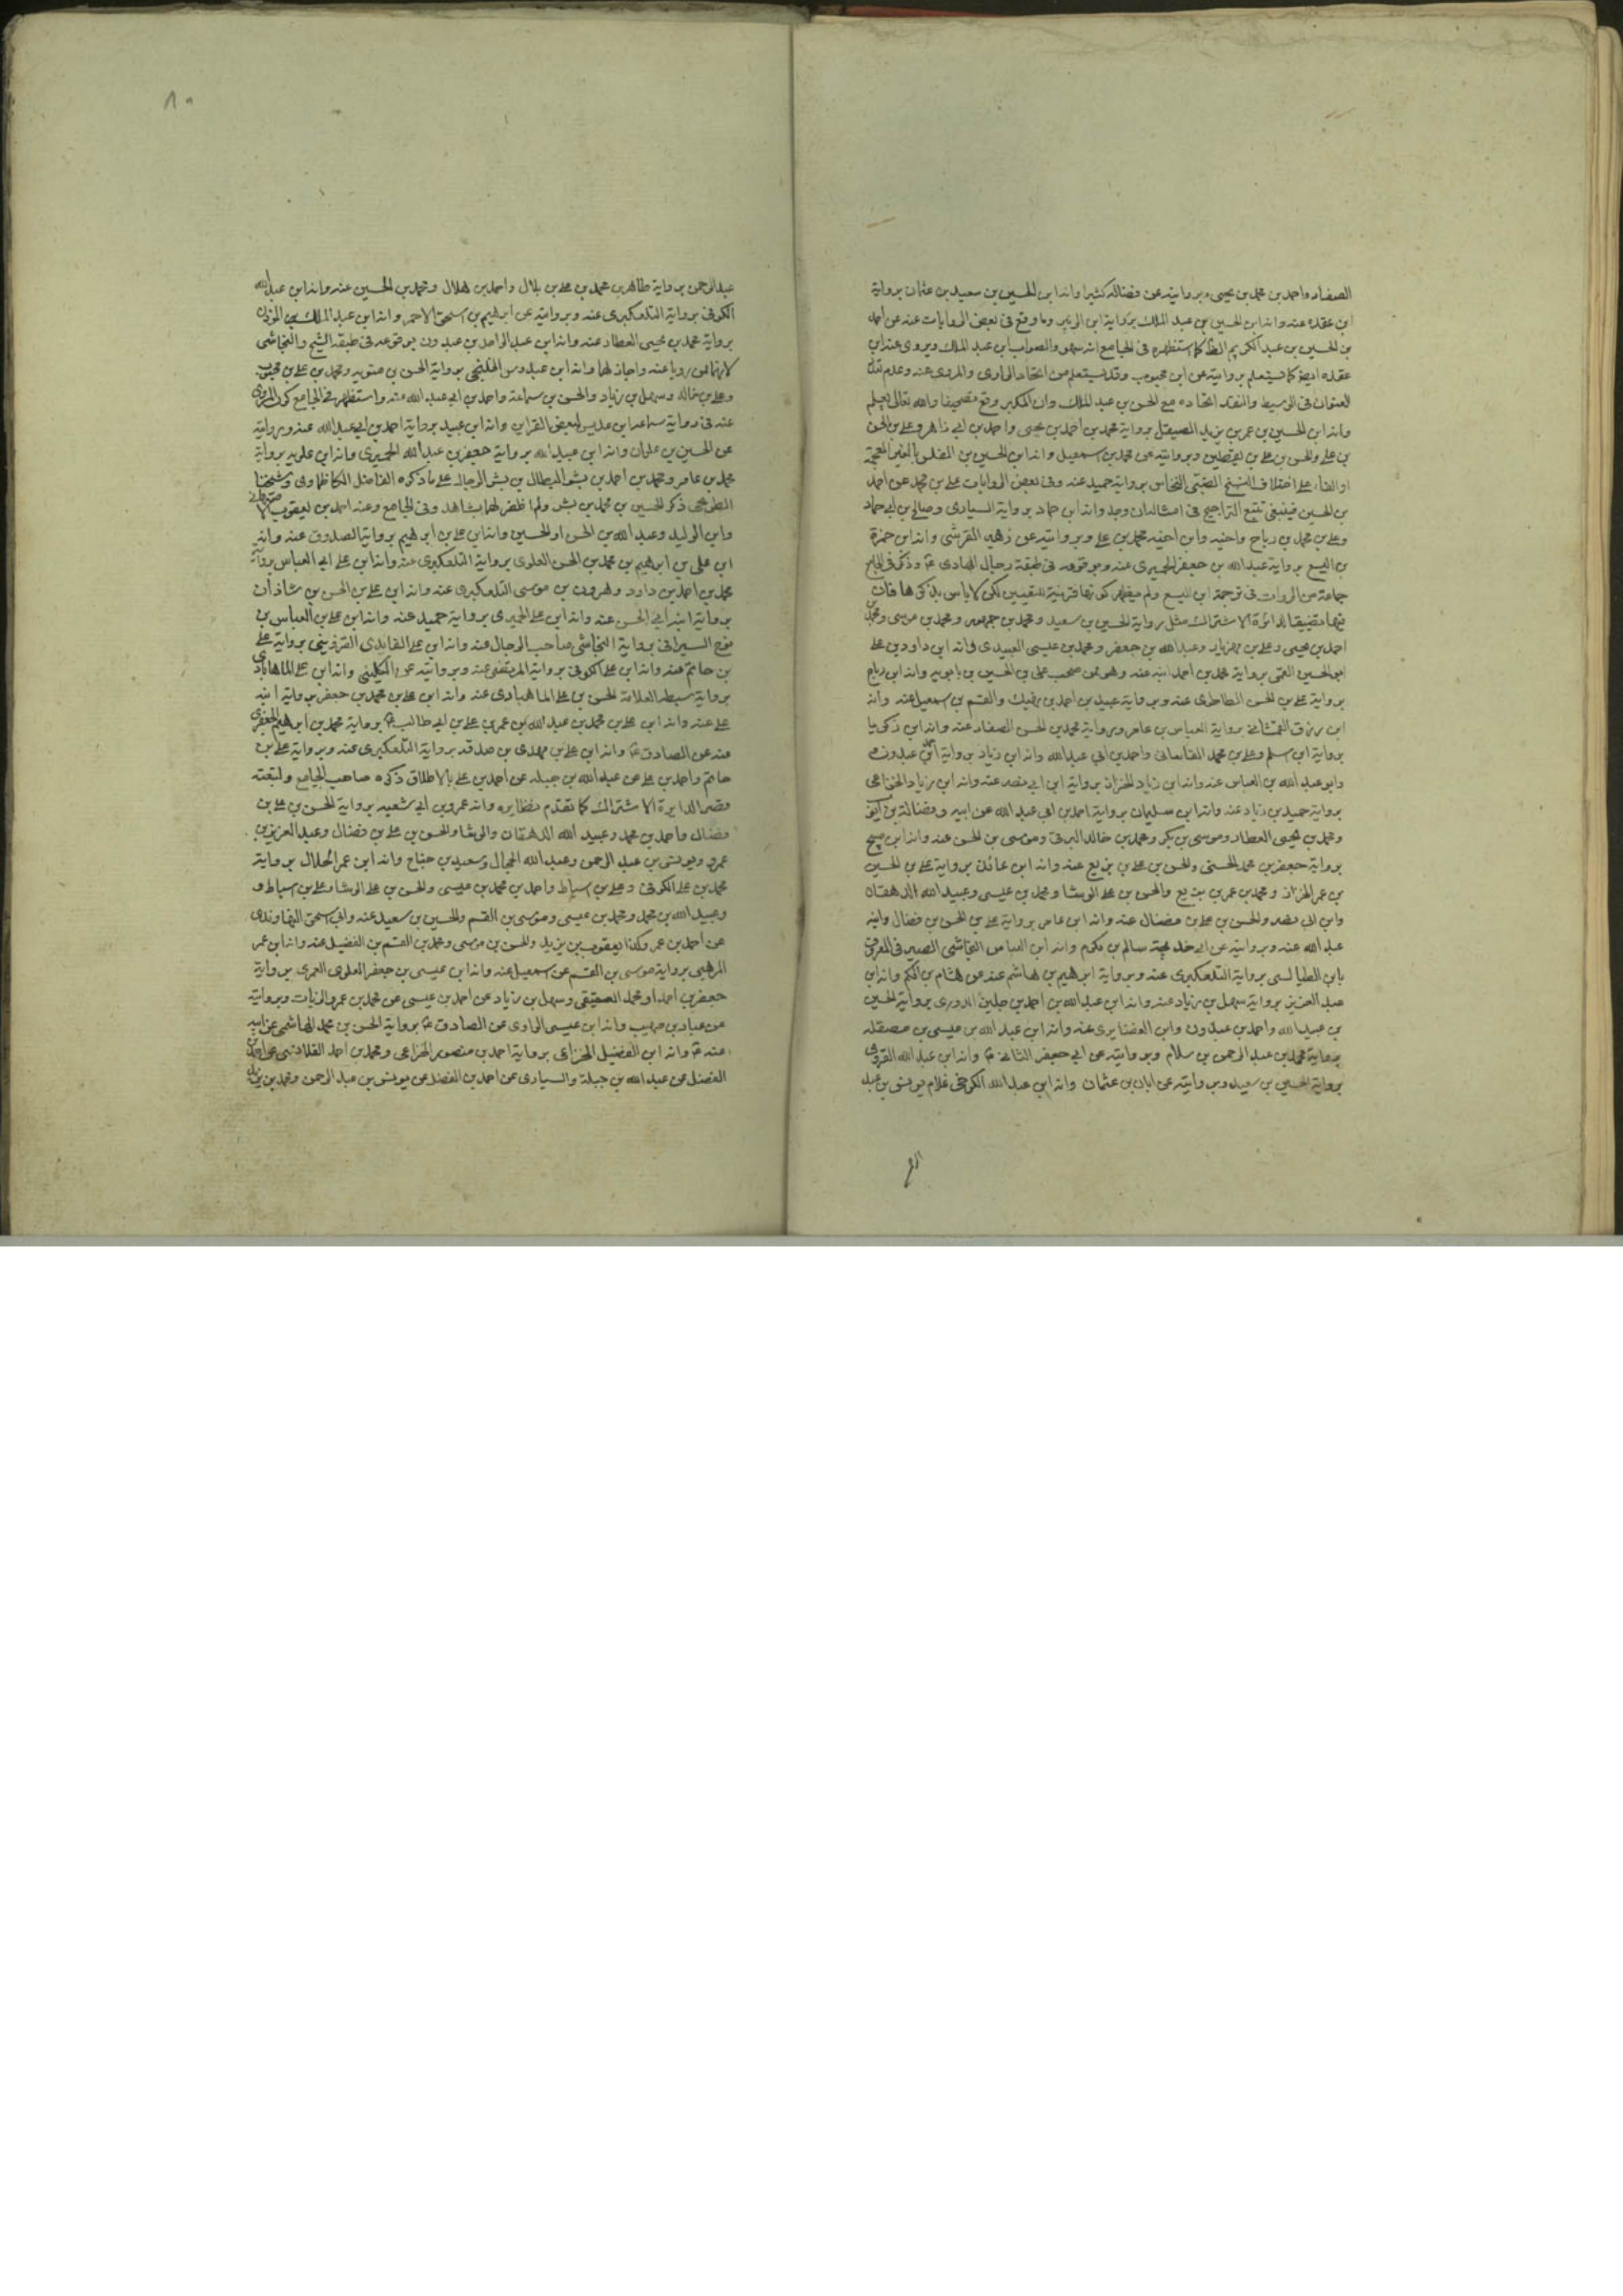 الصفار واحمد بن محمد بن يحيى وبروايته عن فضاله كثيرا وانه ابن الحسين بن سعيد بن عثمان برواية
ابن عقده عنه وانه ابن الحسين بن عبد الملك برواية ابن الزبير وما وقع فى بعض الروايات عنه عن احمد
بن الحسين بن عبد الكريم الظ كما استظهره فى الجامع انه سهو والصواب ابن عبد الملك ويروى عنه ابن
عقده ايضا كما سيعلم بروايته عن ابن محبوب وقد يستعلم من اتحاد الراوى والمروى عنه وعدم
العنوان فى الوسيط والنقد اتحاده مع الحسن بن عبد الملك وان المكبر وقع تصحيفا والله تعالى يعلم
وانه ابن الحسين بن عمر بن يزيد الصيقل برواية محمد بن احمد بن يحيى واحمد بن ابى زاهر وعلى بن الحسن
بن على والحسن بن على بن يقطين وبروايته عن محمد بن اسمعيل وانه ابن الحسين بن المفلس بالغين المعجمة
او الفاء على اختلاف النسخ الضبى النخاس برواية حميد عنه وفى بعض الروايات على بن محمد عن احمد
بن الحسين فينبغى تتبع التراجيح فى امثال ذلك وجد وانه ابن حماد برواية السيارى وصالح بن ابى حماد
وعلى بن محمد بن رباح واخيه وابن اخيه محمد بن على وبروايته عن زهير القرشى وانه ابن حمزة
بن اليسع برواية عبد الله بن جعفر الحميرى عنه وبوقوعه فى طبقة رجال الهادى ع وذكر فى الجامع
جماعة من الروات فى ترجمة ابن اليسع ولم يظهر كونها قرينة للتعيين لكن لا باس بذكرها فان
فيها تضييقا لدائرة الاشتراك مثل رواية الحسين بن سعيد ومحمد بن جمهور ومحمد بن موسى ومحمد بن
احمد بن يحيى وعلى بن مهزيار وعبد الله بن جعفر ومحمد بن عيسى العبيدى وانه ابن داود بن على
ابو الحسين القمى برواية محمد بن احمد ابنه عنه وهو ممن صحب على بن الحسين بن بابويه وانه ابن رباح
برواية على بن الحسن الطاطرى عنه وبرواية عبيد بن احمد بن نهيك والقسم بن اسمعيل عنه وانه
ابن رزق الغمشانى برواية العباس بن عامر وبرواية محمد بن الحسن الصفار عنه وانه ابن زكريا
برواية ابن اسلم وعلى بن محمد القاسانى واحمد بن ابى عبد الله وانه ابن زياد برواية احمد بن عبدون
وابو عبد الله بن العباس عنه وانه ابن زياد الخزاز برواية ابن ابى نصر عنه وانه ابن زياد الخزاعى
برواية حميد بن زياد عنه وانه ابن سليمان برواية احمد بن ابى عبد الله عن ابيه وفضالة بن ايوب
ومحمد بن يحيى العطار وموسى بن بكر ومحمد بن خالد البرقى وموسى بن الحسن عنه وانه ابن صبيح
برواية جعفر بن محمد الحسنى والحسن بن على بن بزيع عنه وانه ابن عائذ برواية على بن الحسين
بن عمر الخزاز ومحمد بن عمر بن بزيع والحسن بن على الوشا ومحمد بن عيسى وعبيد الله الدهقان
وابن ابى نصر والحسن بن على بن فضال عنه وانه ابن عامر برواية على بن الحسن بن فضال وابنه
عبد الله عنه وبروايته عن ابى خديجة سالم بن مكرم وانه ابن العباس النجاشى الصيرفى المعروف
بابن الطيالسى برواية التلعكبرى عنه وبرواية ابرهيم بن هاشم عنه عن هشام بن الحكم وانه ابن
عبد العزيز برواية سهل بن زياد عنه وانه ابن عبد الله بن احمد بن جلين الدورى برواية الحسين
بن عبيد الله واحمد بن عبدون وابن الغضايرى عنه وانه ابن عبد الله بن عيسى بن مصقله
برواية محمد بن عبد الرحمن بن سلام وبروايته عن ابى جعفر الثانى ع وانه ابن عبد الله القروى
برواية الحسين بن سعيد وبروايته عن ابان بن عثمان وانه ابن عبد الله الكرخى غلام يونس بن عبد
الرح
عبد الرحمن برواية طاهر بن محمد بن على بن بلال واحمد بن هلال ومحمد بن الحسين عنه وانه ابن عبد الله
الكوفى برواية التلعكبرى عنه وبروايته عن ابرهيم بن اسحق الاحمر وانه ابن عبد الملك المؤذن
برواية محمد بن يحيى العطار عنه وانه ابن عبد الواحد بن عبدون بوقوعه فى طبقة الشيخ والنجاشى
لانهما ممن رويا عنه واجاز لهما وانه ابن عبدوس الخليجى برواية الحسن بن متويه ومحمد بن على بن محبوب
وعلى بن خالد وسهل بن زياد والحسن بن سماعة واحمد بن ابى عبد الله عنه واستظهر فى الجامع كون المروى
عنه فى رواية سماعة ابن عديس لبعض القراين وانه ابن عبيد برواية احمد بن ابى عبد الله عنه وبروايته
عن الحسين بن علوان وانه ابن عبيد الله برواية جعفر بن عبد الله الحميرى وانه ابن علويه برواية
محمد بن عامر ومحمد بن احمد بن بشر البطال بن بشر الرحال على ما ذكره الفاضل الكاظماوى وشيخنا
الطريحى ذكر الحسين بن محمد بن بشر ولم اظفر لهما بشاهد وفى الجامع وعنه احمد بن يعقوب الاصفهانى
وابن الوليد وعبد الله بن الحسن او الحسين وانه ابن على بن ابرهيم برواية الصدوق عنه وانه
ابن على بن ابرهيم بن محمد بن الحسن العلوى برواية التلعكبرى عنه وانه ابن على ابى العباس برواية
محمد بن احمد بن داود وهرون بن موسى التلعكبرى عنه وانه ابن على بن الحسن بن شاذان
برواية ابنه ابى الحسن عنه وانه ابن على الحميرى برواية حميد عنه وانه ابن على بن العباس بن
نوح السيرافى برواية النجاشى صاحب الرجال عنه وانه ابن على الفايدى القزوينى برواية على
بن حاتم عنه وانه ابن على الكوفى برواية المرتضى عنه وبروايته عن الكلينى وانه ابن على الماهابادى
برواية سبطه العلامة الحسن بن على الماهبادى عنه وانه ابن على بن محمد بن جعفر برواية ابنه
على عنه وانه ابن على بن محمد بن عبد الله بن عمر بن على بن ابى طالب ع برواية محمد بن ابرهيم الجعفرى
عنه عن الصادق ع وانه ابن على بن مهدى بن صدقه برواية التلعكبرى عنه وبرواية على بن
حاتم واحمد بن على عن عبد الله بن جبله عن احمد بن على بالاطلاق ذكره صاحب الجامع ولتبعته
قصر الدايرة الاشتراك كما تقدم نظايره وانه عمرو بن ابى شعبه برواية الحسن بن على بن
فضال واحمد بن محمد وعبيد الله الدهقان والوشا والحسن بن على بن فضال وعبد العزيز بن
عمرو ويونس بن عبد الرحمن وعبد الله الحجال وسعيد بن جناح وانه ابن عمر الحلال برواية
محمد بن على الكوفى وعلى بن اسباط واحمد بن محمد بن عيسى والحسن بن على الوشا وعلى بن اسباط و
وعبيد الله بن محمد ومحمد بن عيسى وموسى بن القسم والحسين بن سعيد عنه وابى اسحق النهاوندى
عن احمد بن عمر وكذا يعقوب بن يزيد والحسن بن موسى ومحمد بن القسم بن الفضيل عنه وانه ابن عمر
المرهبى برواية موسى بن القسم عن اسمعيل عنه وانه ابن عيسى بن جعفر العلوى العمرى برواية
جعفر بن احمد او محمد العقيقى وسهل بن زياد عن احمد بن عيسى عن محمد بن عمرو الزيات وبروايته
عن عباد بن صهيب وانه ابن عيسى الراوى عن الصادق ع برواية الحسن بن محمد الهاشمى عن ابيه
عنه ع وانه ابن الفضيل الخزاعى برواية احمد بن منصور الخزاعى ومحمد بن احمد القلانسى عن احمد بن
الفضل عن عبد الله بن جبلة والسيارى عن احمد بن الفضل عن يونس بن عبد الرحمن ومحمد بن يزيد